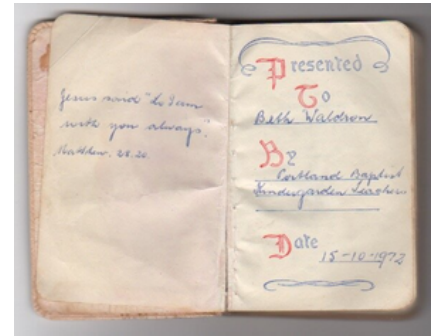 Jesus said "Lo I am
with you always".
Matthew. 28.20.
Presented
To
Beth Waldron
By
Portland Baptist
Kindergarden Teachers
Date
15-10-1972